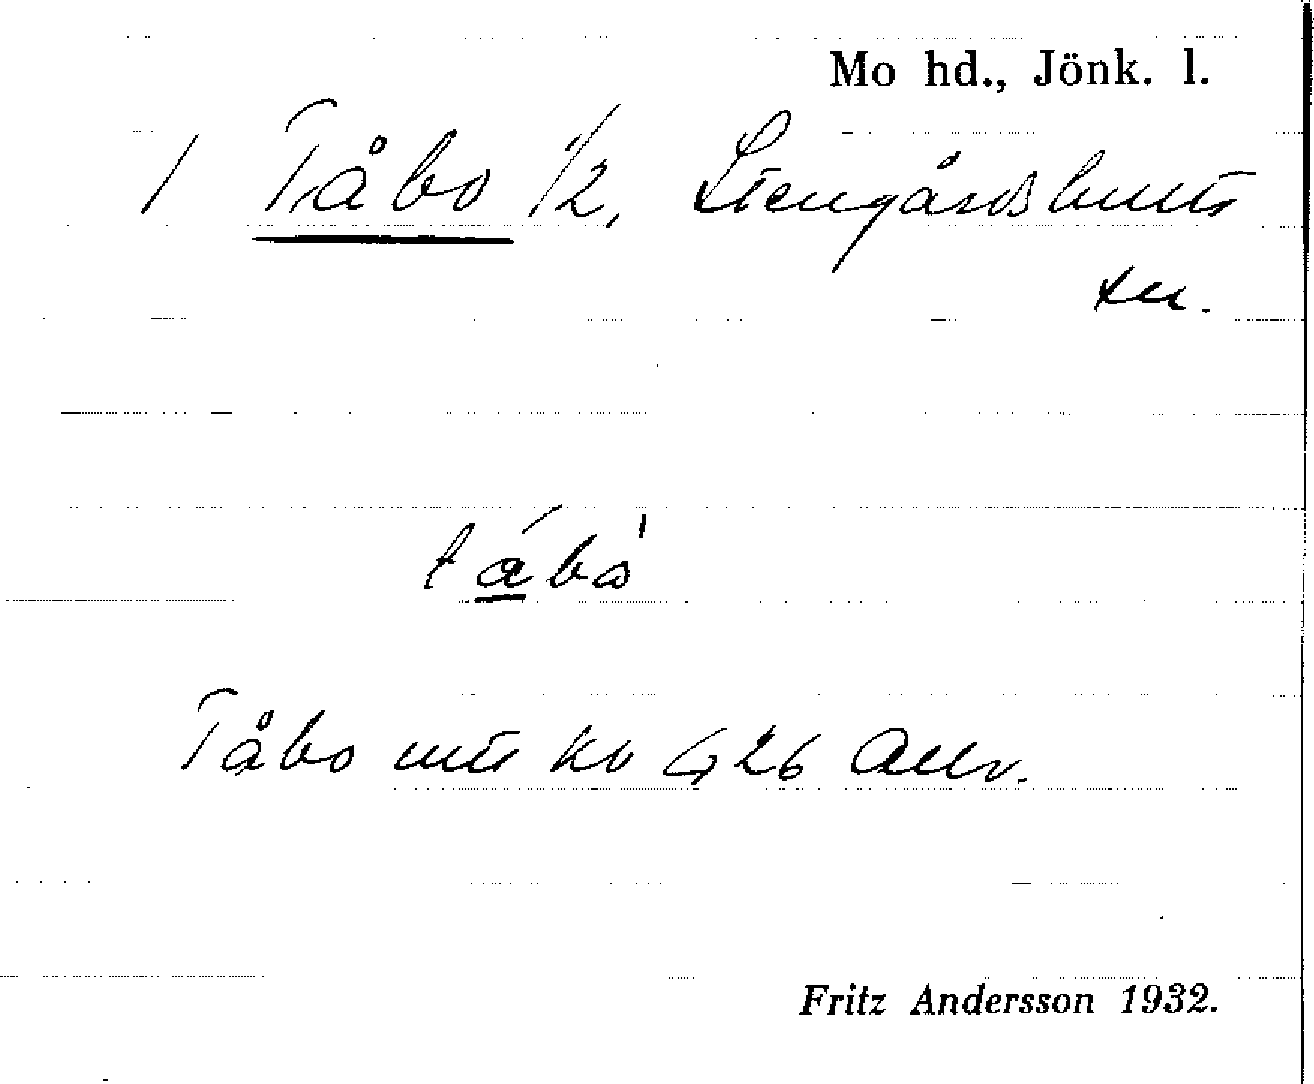 Mo hd., Jönk. l.
1 Tåbo 1/2, Stengårdshults
sn.
tábò
Tåbo mtl kb 426 Allv.
Fritz Andersson 1932.